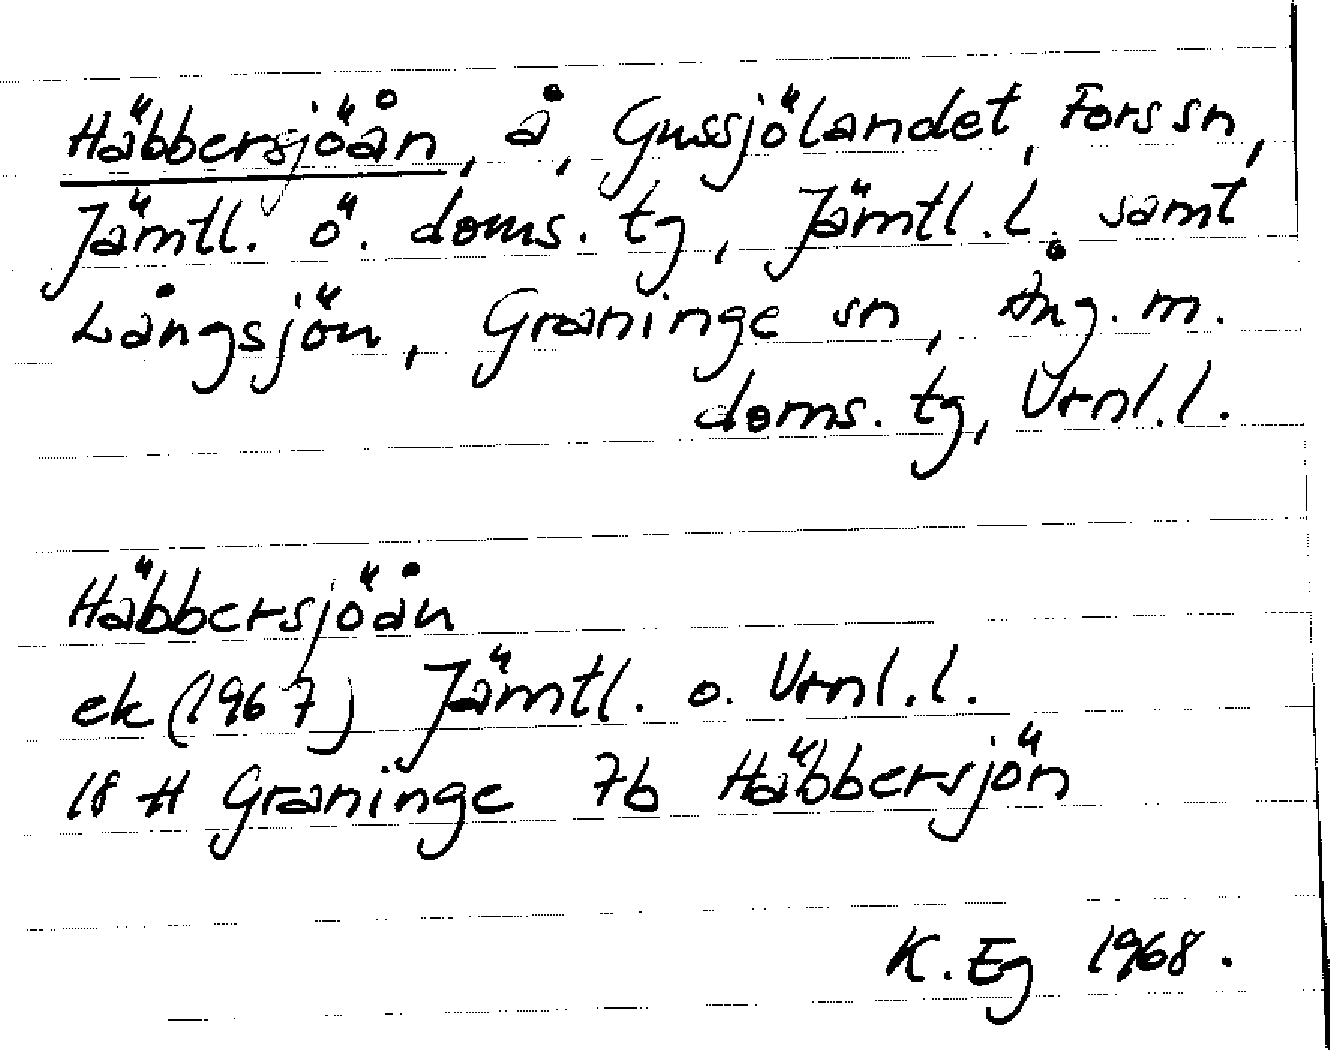 Häbbersjöån, å, Gussjölandet, Fors sn,
Jämtl. ö. doms. tg, Jämtl. l. samt
Långsjön, Graninge sn, Ång. m.
doms. tg, Vrnl. l.
Häbbersjöån
ek (1967) Jämtl. o. Vrnl. l.
18 H Graninge 7b Häbbersjön
K. Eg 1968.